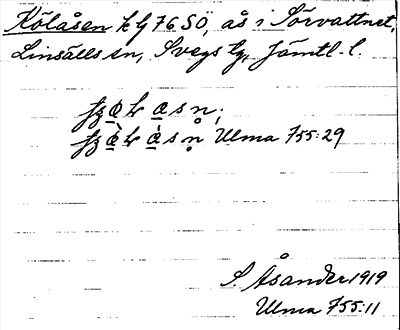 Kölåsen k G 76 SÖ, ås i Sörvattnet,
Linsälls sn, Svegs tg, Jämtl. l.
Ulma 755:29
S. Åsander 1919
Ulma 755:11